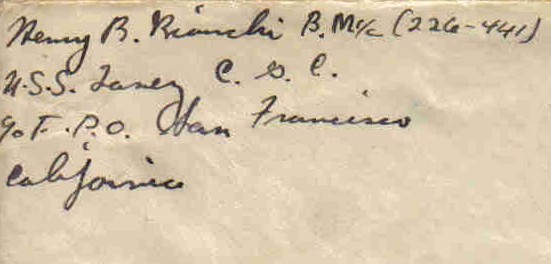 Henry B. Bianchi B. M 1/c (226-441)
U.S.S. Taney C. G. C.
% F. P.O. San Francisco
California